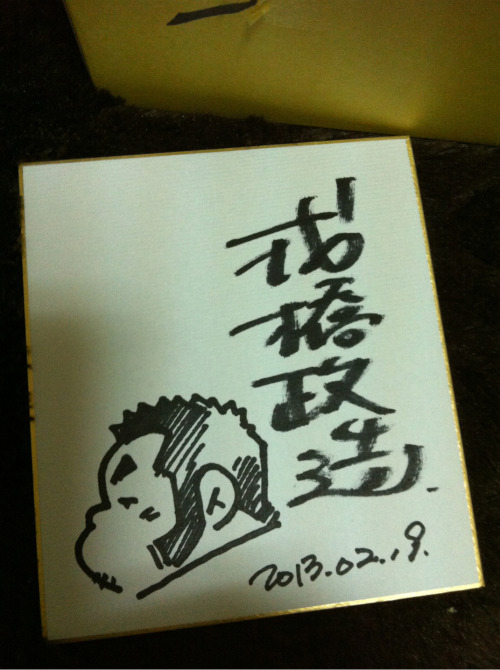 戎橋政造
2013.02.19.